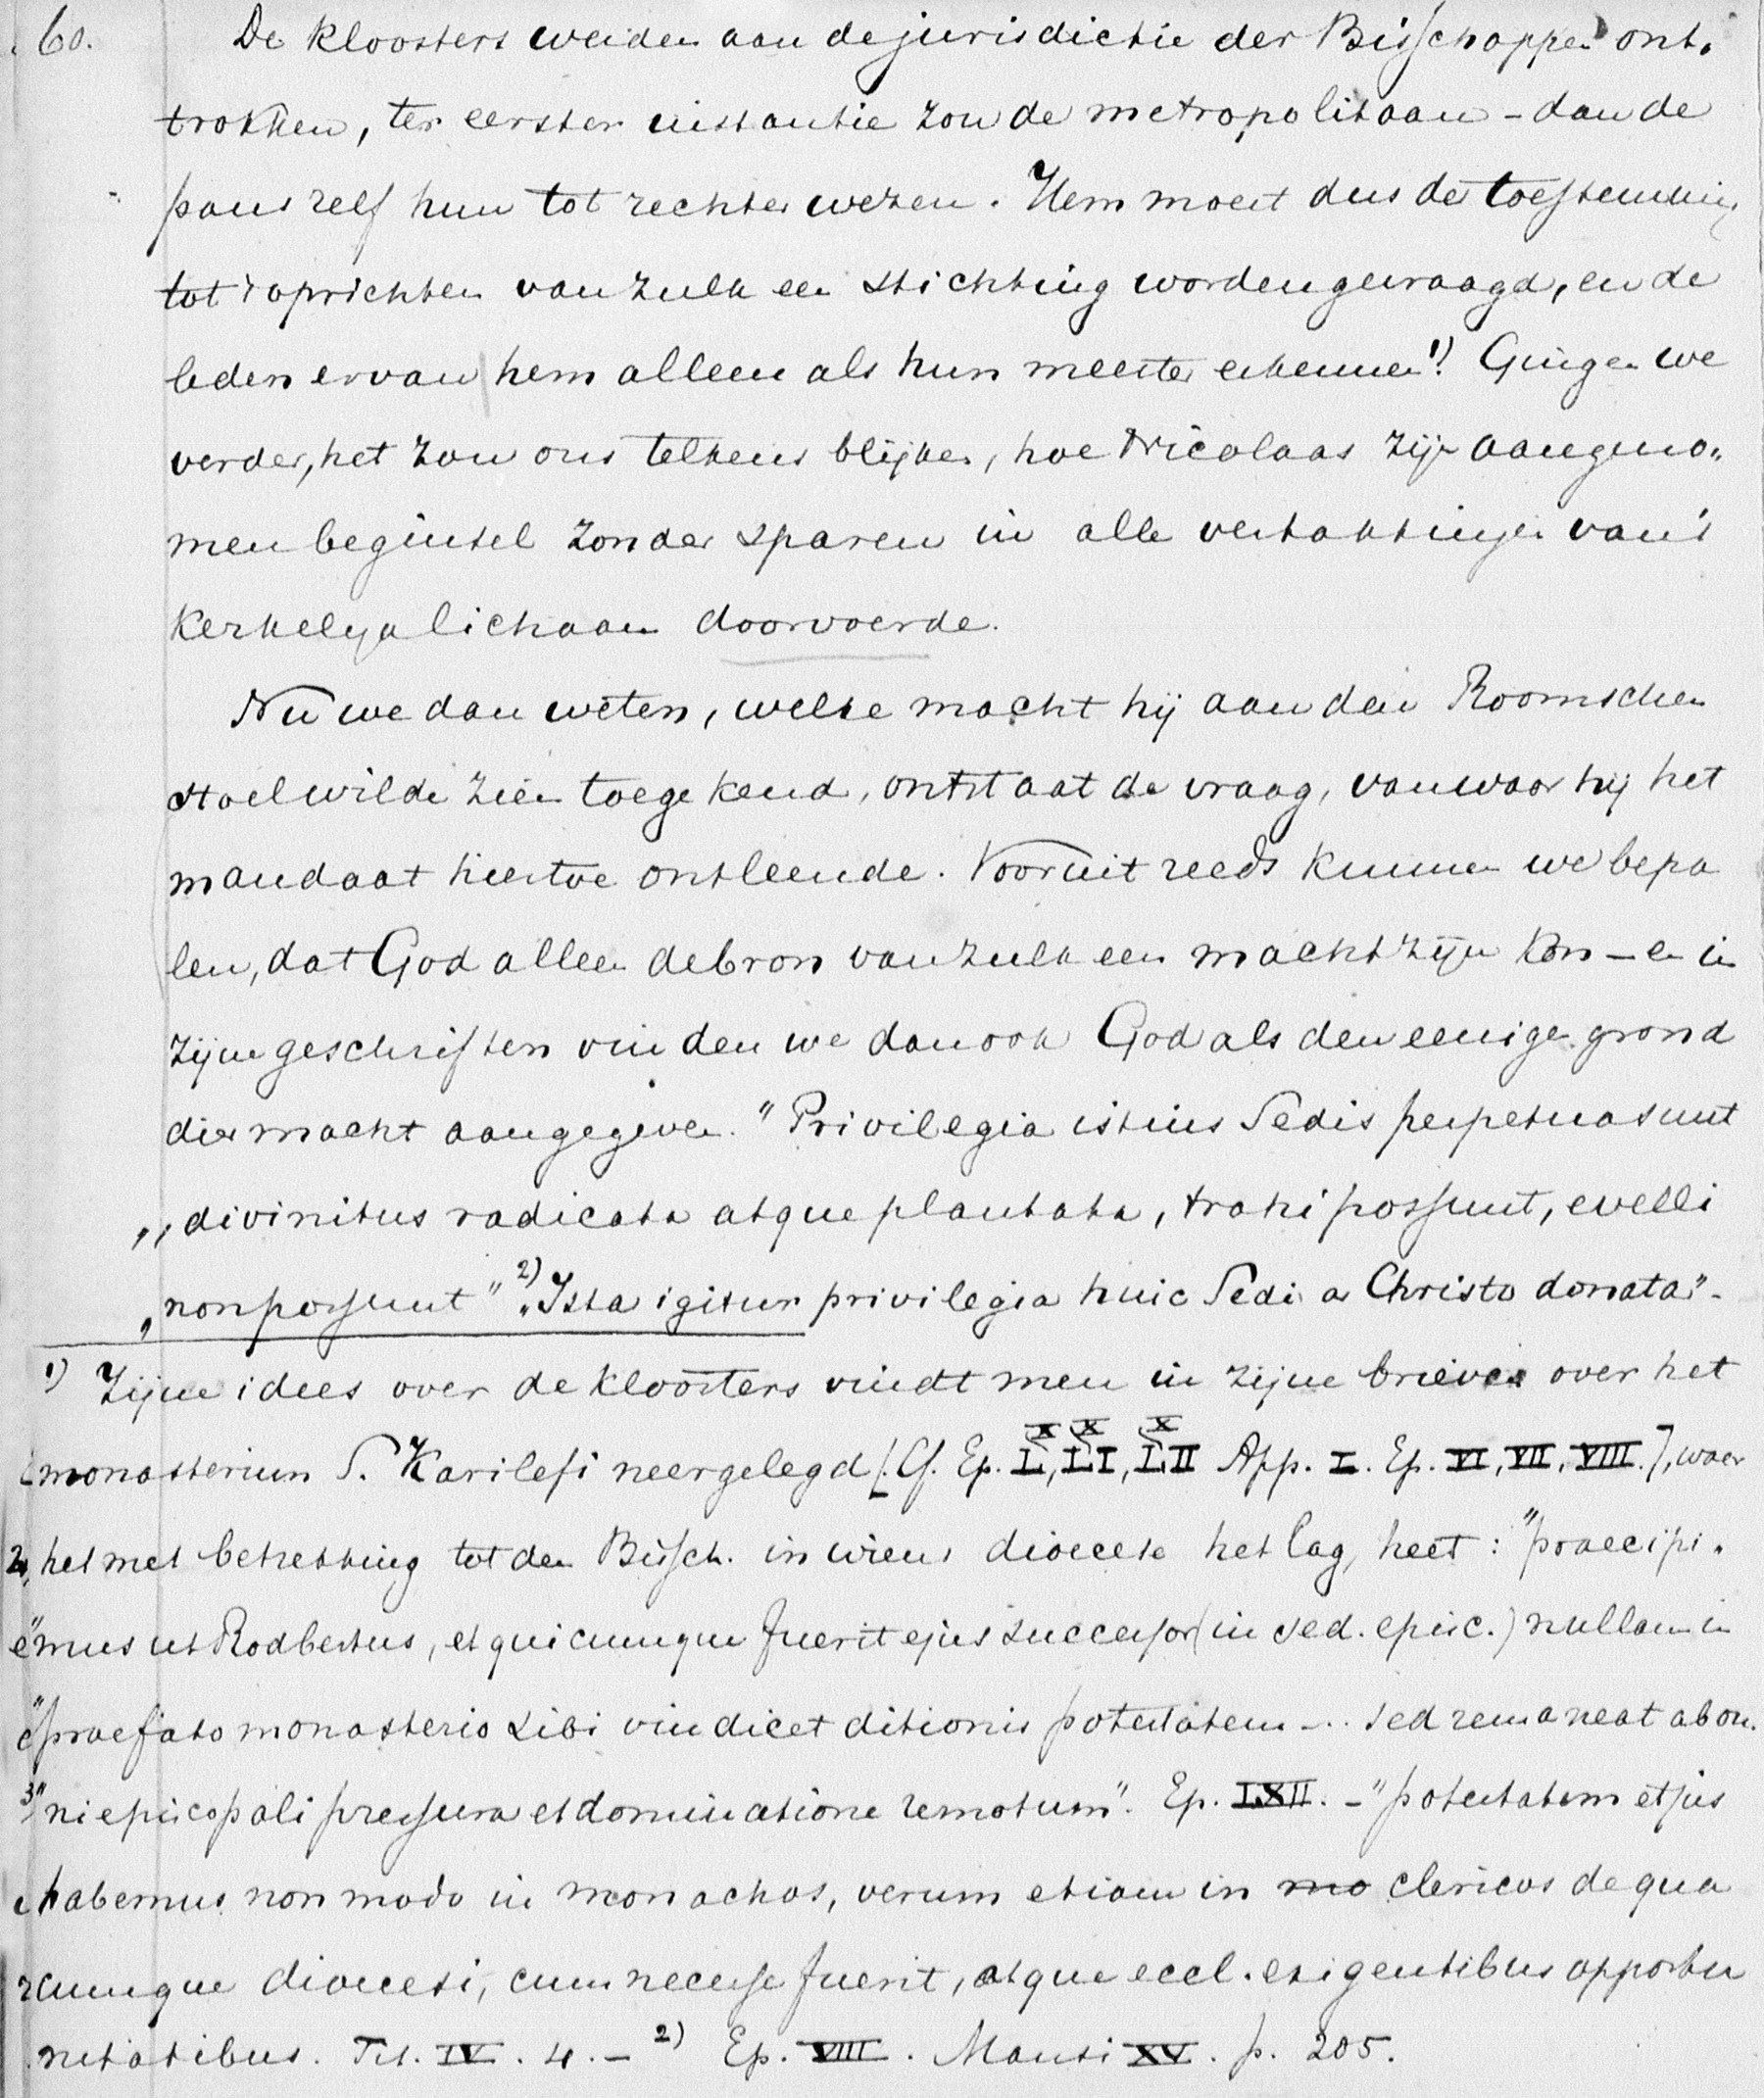 60. De kloosters werden aan de jurisdictie der Bisschoppen ont„
trokken, ter eerster instantie zou de metropolitaan – dan de
paus zelf hun tot rechter wezen. Hem moest dus de toestemming
tot 't oprichten van zulk een stichting worden gevraagd, en de
leden ervan hem alleen als hun meester erkennen 1)! Gingen we
verder, het zou ons telkens blijken, hoe Nicolaas zijn aangeno„
men beginsel zonder sparen in alle vertakkingen van 't
Kerkelijk lichaam doorvoerde.
Nu we dan weten, welke macht hij aan den Roomschen
stoel wilde zien toegekend, ontstaat de vraag, vanwaar hij het
mandaat hiertoe ontleende. Vooruit reeds kunnen we bepa
len, dat God alleen de bron van zulk een macht zijn kon – en in
zijne geschriften vinden we dan ook God als den eenigen grond
dier macht aangegeven. "Privilegia istius Sedis perpetua sunt
„divinitus radicata atque plantata, trahi possunt, evelli
„non possunt" 2) „Ista igitur privilegia huic Sedi a Christo donata" –
1) Zijne idees over de kloosters vindt men in zijne brieven over het
monasterium S. Karilefi neergelegd [Cf. Ep. LX, LXI, LXII App. I. Ep. VI, VII, VIII.], waar
het met betrekking tot den Bisch. in wiens diocese het lag, heet: "praecipi„
"mus ut Rodbertus, et quicumque fuerit ejus successor (in sed. episc.) nullam in
"praefato monasterio sibi vindicet ditionis potestatem –.. sed remaneat ab om„
"ni episcopali pressura et dominatione remotum". Ep. LXII. – "potestatem et jus
habemus non modo in monachos, verum etiam in mo clericos de qua
cumque diocesi, cum necesse fuerit, atque eccl. exigentibus opportu
nitatibus. Tit. IV. 4. – 2) Ep. VIII. Mansi XV. p. 205.